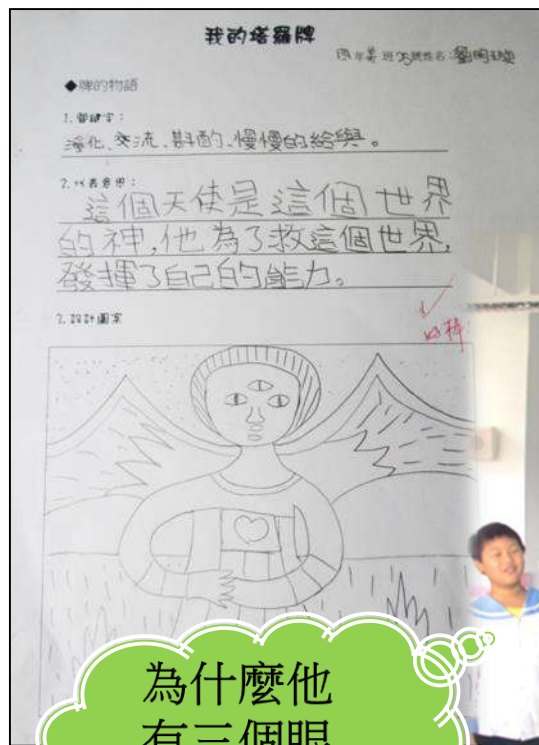 我的塔羅牌
年美班25號姓名:劉
◆牌的物語
1.關鍵字:
淨化、交流、斟酌、慢慢的給與。
2.代表意思:
這個天使是這個世界
的神,他為了救這個世界,
發揮了自己的能力。
3.設計圖案
好棒
為什麼他
有三個眼